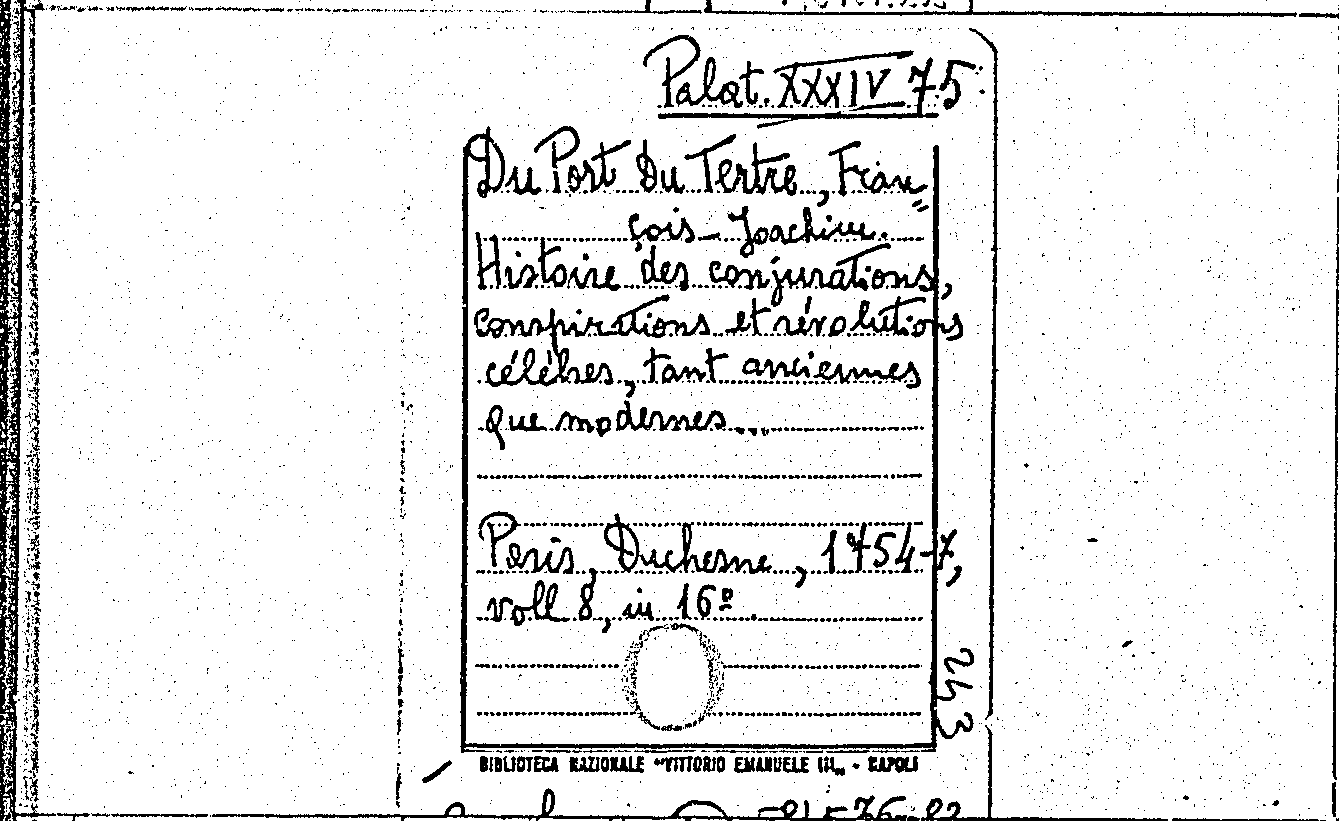 Palat. XXXIV 75
Du Port Du Tertre, Fran=
çois-Joachim.
Histoire des conjurations,
conspirations et révolutions
célèbres, tant anciennes
que modernes...
Paris, Duchesne, 1754-7,
voll 8, in 16º.
243
BIBLIOTECA NAZIONALE "VITTORIO EMANUELE III„ - NAPOLI